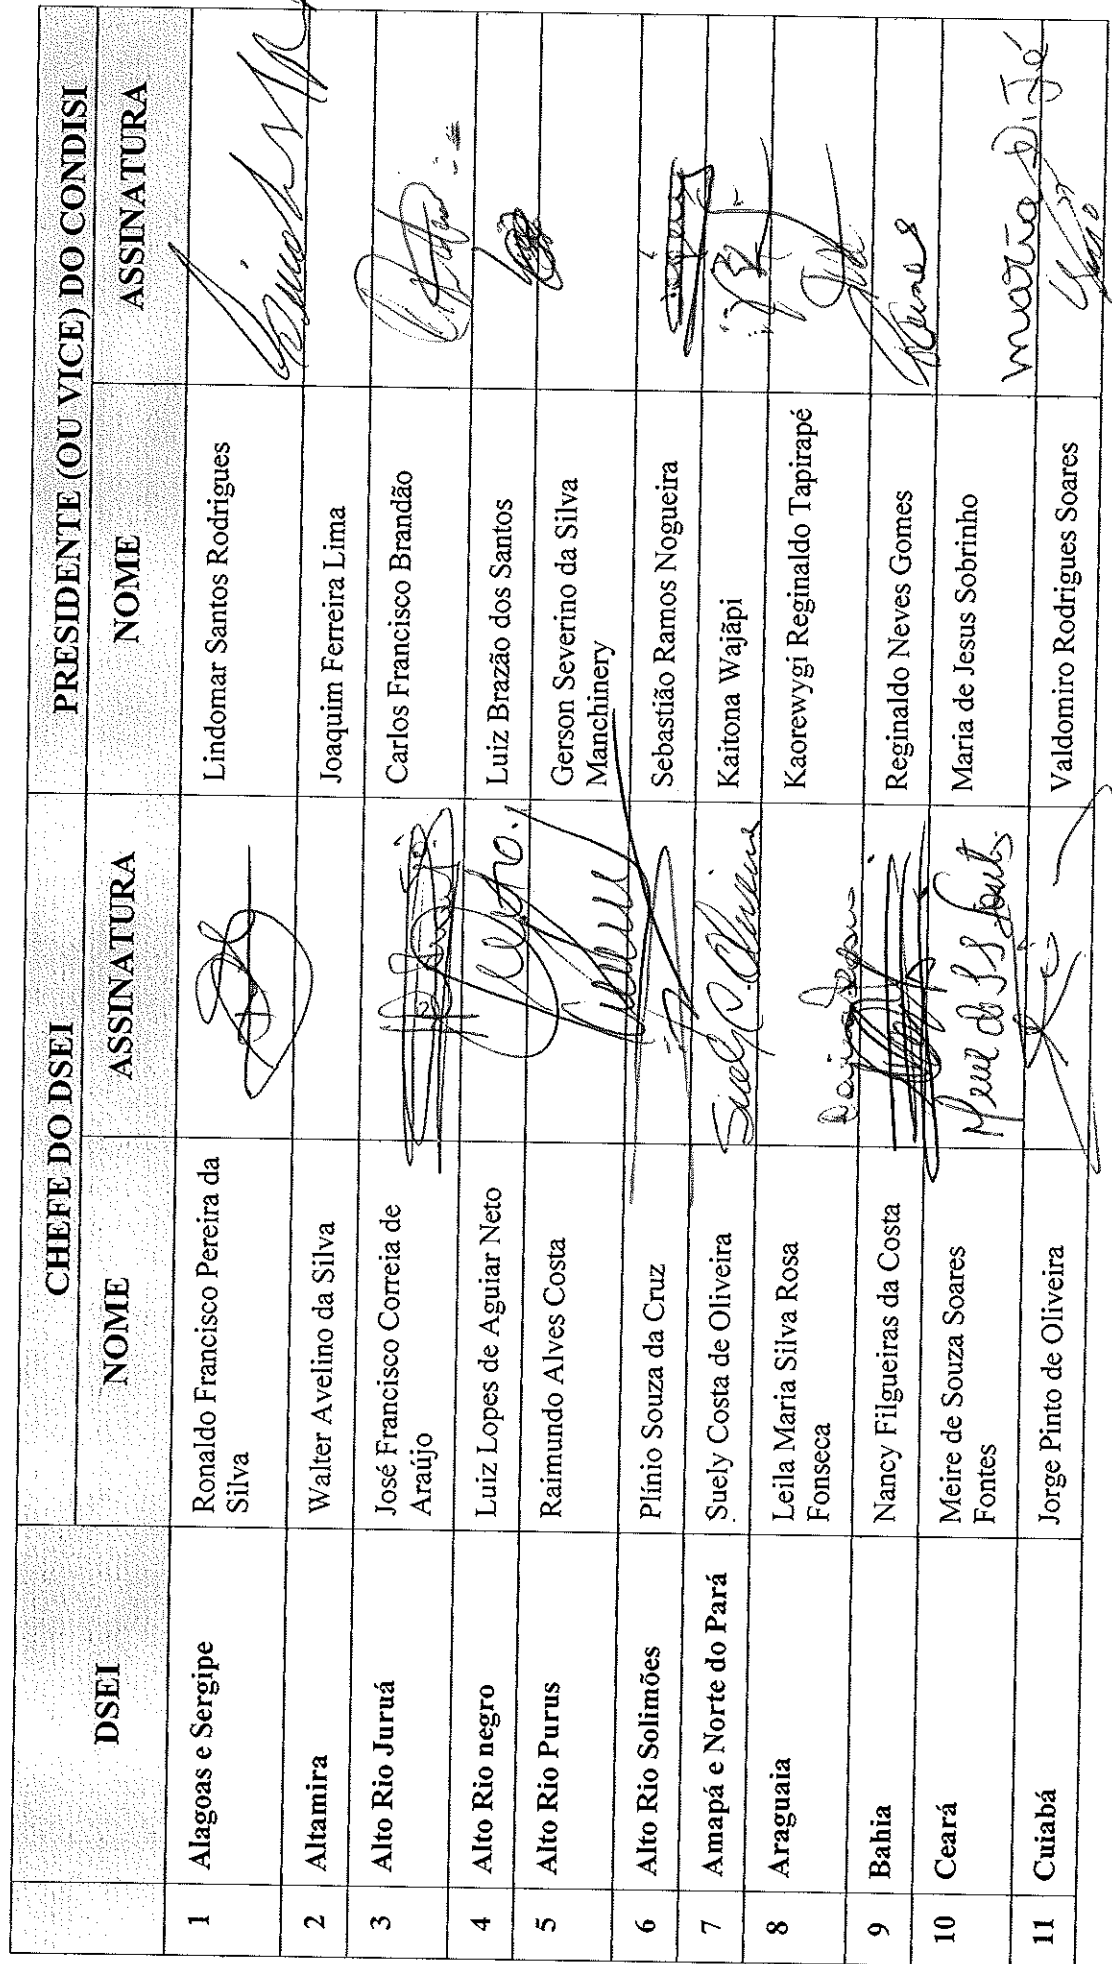 CHEFE DO DSEI
PRESIDENTE (OU VICE) DO CONDISI
DSEI
NOME
ASSINATURA
NOME
ASSINATURA
1 Alagoas e Sergipe
Ronaldo Francisco Pereira da
Silva
Lindomar Santos Rodrigues
2 Altamira
Walter Avelino da Silva
Joaquim Ferreira Lima
3 Alto Rio Juruá
José Francisco Correia de
Araújo
Carlos Francisco Brandão
4 Alto Rio negro
Luiz Lopes de Aguiar Neto
Luiz Brazão dos Santos
5 Alto Rio Purus
Raimundo Alves Costa
Gerson Severino da Silva
Manchinery
6 Alto Rio Solimões
Plínio Souza da Cruz
Sebastião Ramos Nogueira
7 Amapá e Norte do Pará
Suely Costa de Oliveira
Suely C. Oliveira
Kaitona Wajãpi
8 Araguaia
Leila Maria Silva Rosa
Fonseca
Kaorewygi Reginaldo Tapirapé
9 Bahia
Nancy Filgueiras da Costa
Reginaldo Neves Gomes
10 Ceará
Meire de Souza Soares
Fontes
Meire de S S Fontes
Maria de Jesus Sobrinho
maria D J
11 Cuiabá
Jorge Pinto de Oliveira
Valdomiro Rodrigues Soares